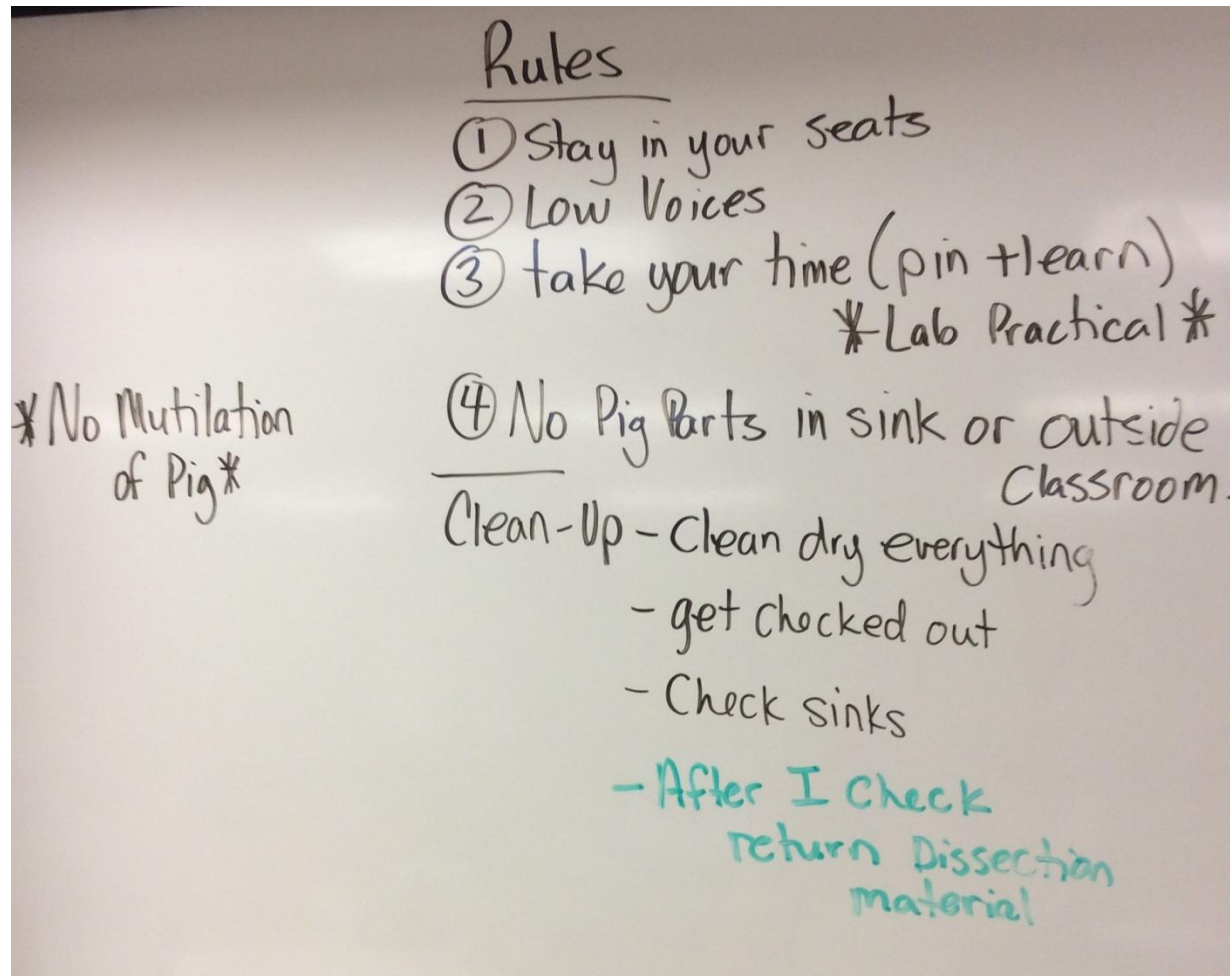 Rules
① Stay in your seats
② Low Voices
③ take your time (pin + learn)
*Lab Practical*
*No Mutilation
of Pig*
④ No Pig Parts in sink or outside
Classroom.
Clean-Up - Clean dry everything
- get checked out
- Check sinks
- After I Check
return Dissection
material